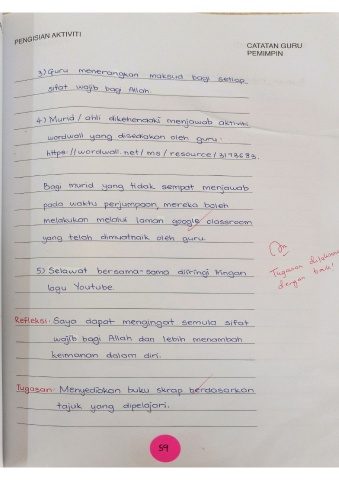 PENGISIAN AKTIVITI
CATATAN GURU
PEMIMPIN
3) Guru menerangkan maksud bagi setiap
sifat wajib bagi Allah.
4) Murid / ahli dikehendaki menjawab aktiviti
wordwall yang disediakan oleh guru:
https://wordwall.net/ms/resource/3178683.
Bagi murid yang tidak sempat menjawab
pada waktu perjumpaan, mereka boleh
melakukan melalui laman google classroom
yang telah dimuatnaik oleh guru.
5) Selawat bersama-sama diiringi
lagu Youtube.
Refleksi: Saya dapat mengingat semula sifat
wajib bagi Allah dan lebih menambah
keimanan dalam diri.
Tugasan: Menyediakan buku skrap berdasarkan
tajuk yang dipelajari.
Tugasan
dengan
59